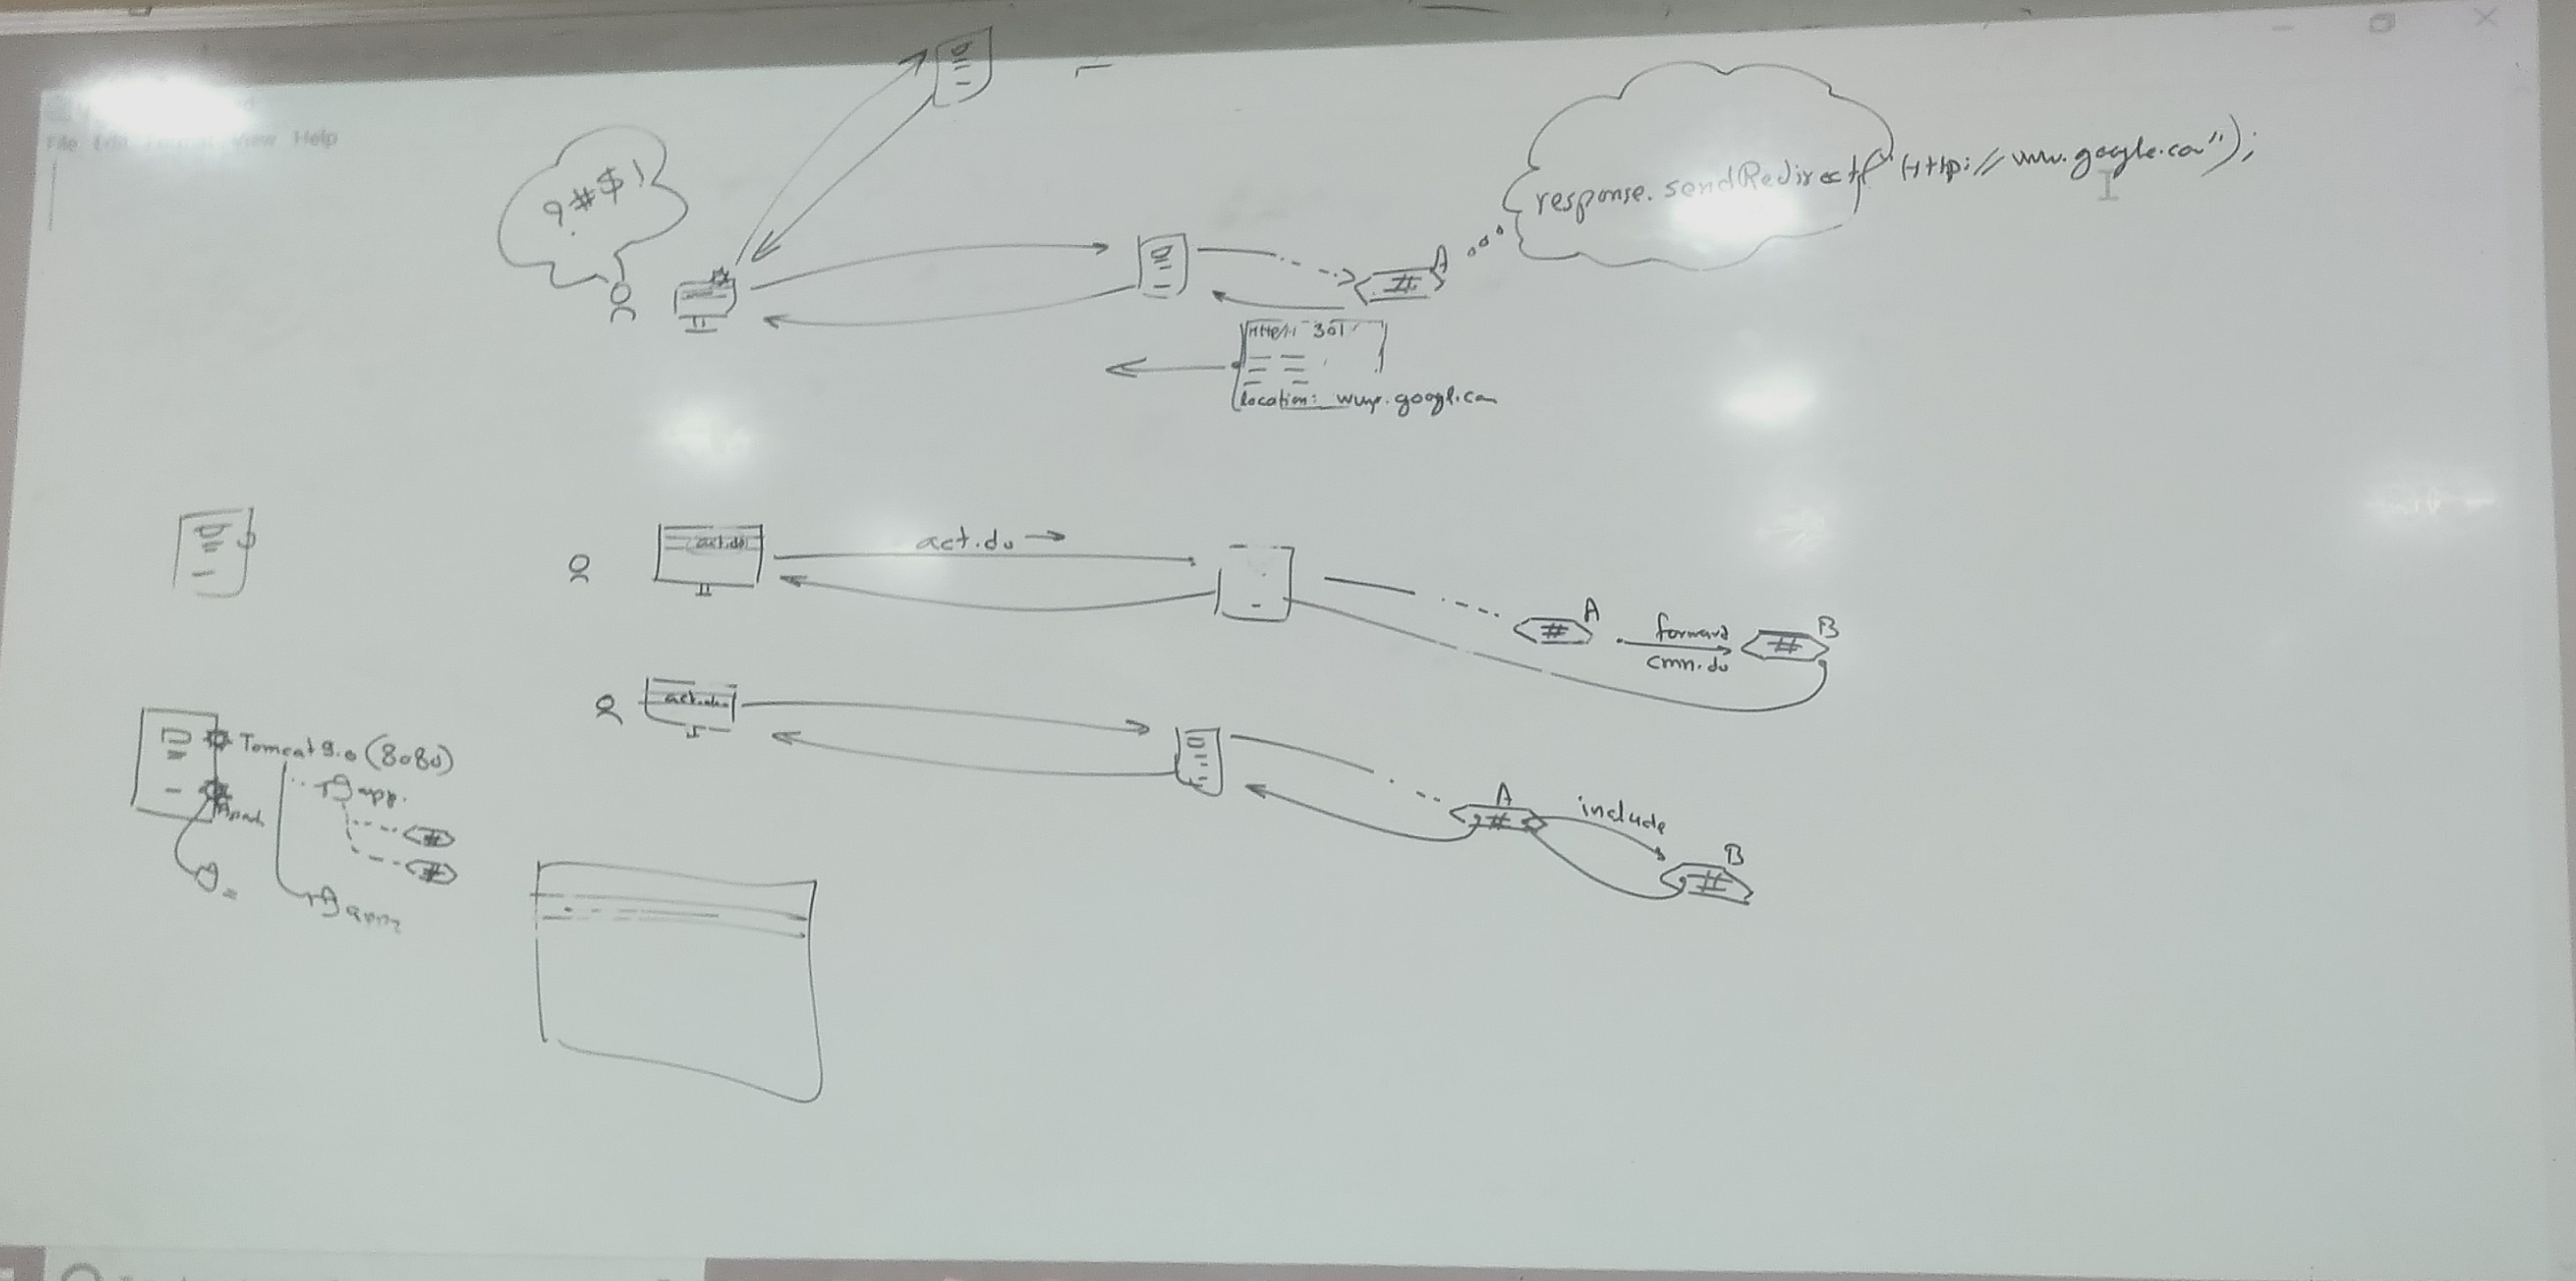 File Edit View Help
?#$!
A
response.sendRedirect("Http://www.google.com");
HTTP/1.1 301
location: www.google.com
act.do
act.do →
A
forward
cmn.do
B
#
#
act.do
Tomcat 9.0 (8080)
app.
#
#
A
#
include
B
#